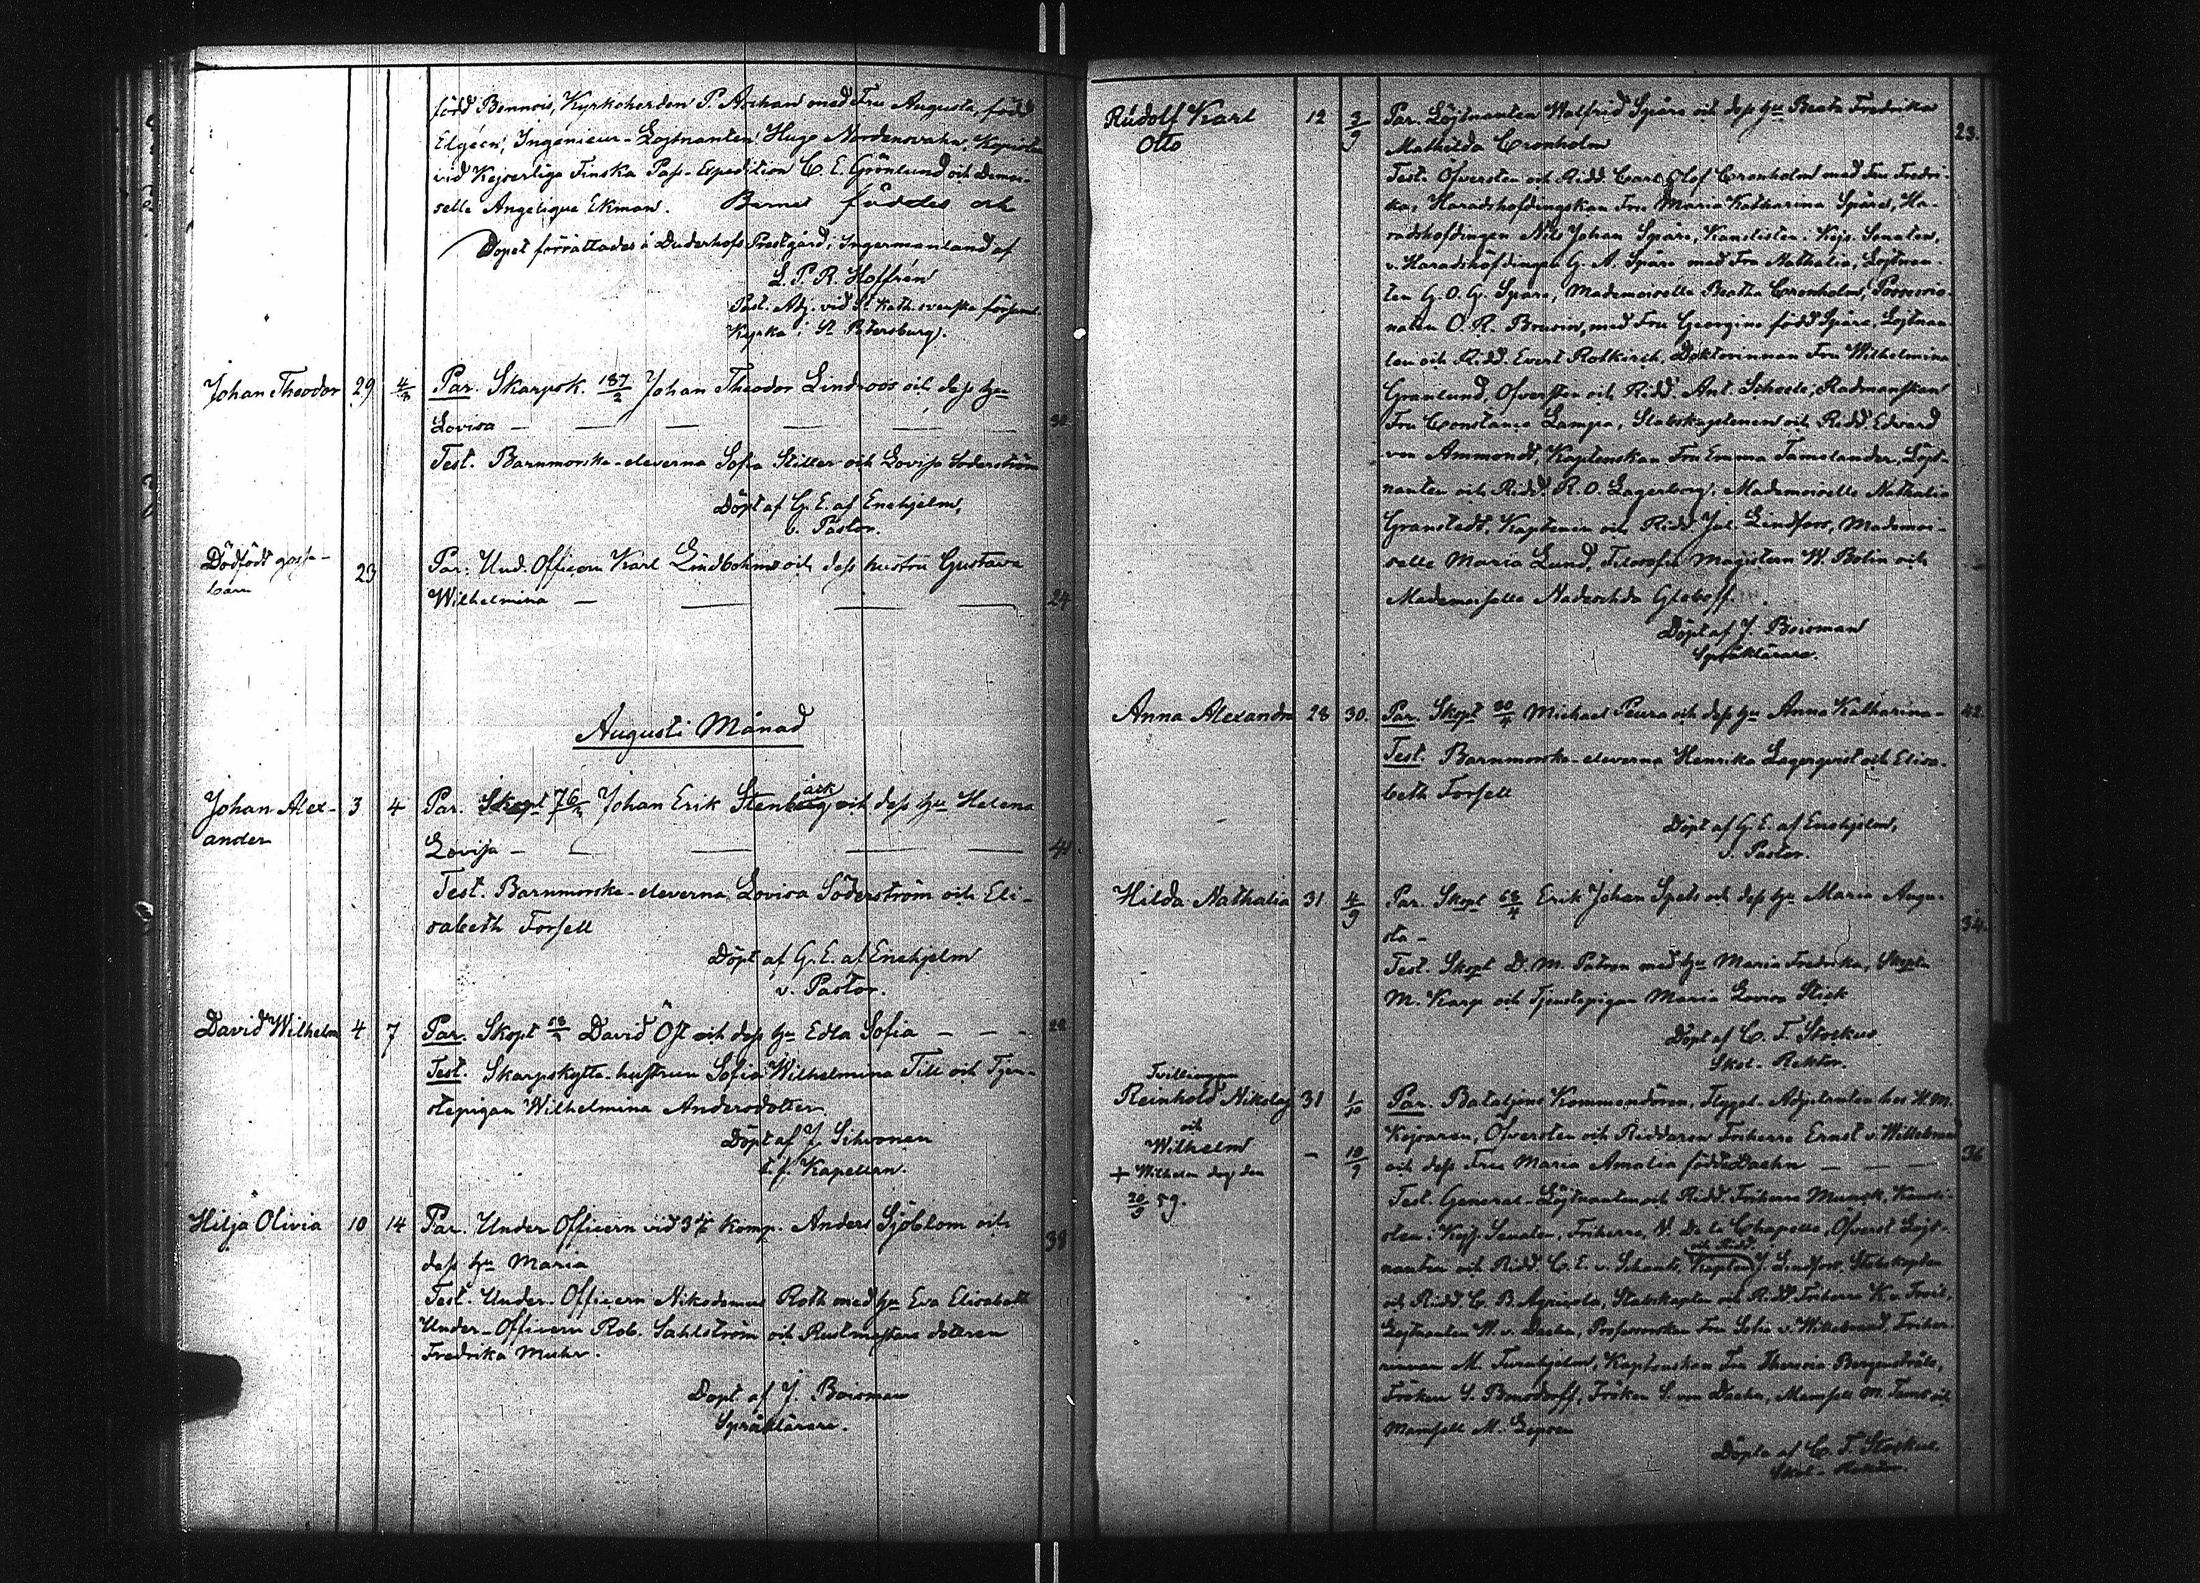 född Bonnois, Kyrkoherden P. Aschan med Fru Augusta, född
Elgéen, Ingenieur-Löjtnanten Hugo Nordensvahn, Kopisten
vid Kejserliga Finska Pass-Expedition C. E. Grönlund och Demoi-
selle Angelique Ekman. Barnet föddes och
Dopet förrättades å Duderhofs Prestgård, Ingermanland af
L. P. R. Hoffrén
Past. Adj. vid St Kath. svenska församl.
Kyrka i St Petersburg.
Johan Theodor 29 Par. Skarpsk. 187/2 Johan Theodor Lindroos och dess hu
Lovisa — — — — — 30
Test. Barnmorske-eleverna Sofia Stiller och Lovisa Söderström
Döpt af G. E. af Enehjelm,
v. Pastor.
Dödfödt gosse-
barn 23 Par. Und. Officern Karl Lindbohm och dess hustru Gustava
Wilhelmina — — — — 24
Augusti Månad
Johan Alex- 3 4 Par. Skopt 76/2 Johan Erik Stenberg och dess hu Helena
bäck
ander Lovisa — — — — — 41.
Test. Barnmorske-eleverna Lovisa Söderström och Eli-
sabeth Forsell
Döpt af G. E. af Enehjelm
v. Pastor.
David Wilhelm 4 7 Par. Skopt David Öst och dess hu Edla Sofia — — —
Test. Skarpskytte-hustrun Sofia Wilhelmina Till och Tjen-
stepigan Wilhelmina Andersdotter
Döpt af J. Sihvonen
t. f. Kapellan.
Hilja Olivia 10 14 Par. Under Officern vid 3dje Komp. Anders Sjöblom och
dess hu Maria 38
Test. Under-Officern Nikodemus Roth med hu Eva Elisabeth
Under-Officern Rob. Sahlström och Rustmästare dottren
Fredrika Muhr.
Döpt af J. Boisman
Språklärare.
Rudolf Karl 12 3/9 Par. Löjtnanten Walfrid Spåre och dess hu Beata Fredrika
Otto Mathilda Cronholm 23.
Test. Öfversten och Ridd. Carl Olof Cronholm med Fru Fredri-
ka, Häradshöfdingskan Fru Maria Katharina Spåre, Hä-
radshöfdingen Nils Johan Spåre, Kanslisten i Kejs. Senaten,
v. Häradshöfdingen G. A. Spåre med Fru Nathalia, Löjtnan-
ten G. O. G. Spåre, Mademoiselle Beatha Cronholm,
O. R. med Fru Georgine född Spåre, Löjtnan-
ten och Ridd. Evert Rotkirch, Doktorinnan Fru Wilhelmina
Granlund, Öfversten och Ridd. Ant. Schoels, Rådmanskan
Fru Constance Lampa, Stabskaptenen och Ridd. Edvard
von Ammondt, Kaptenskan Fru Emma Tamelander, Löjt-
nanten och Ridd. R. O. Lagerborg, Mademoiselle Nathalia
Granstedt, Kaptenen och Ridd. Jul. Lindfors, Mademoi-
selle Maria Lund, Filosofie Magistern W. Bolin och
Mademoiselle Nadeschda Gleboff.
Döpt af J. Boisman
Språklärare.
Anna Alexandra 28 30. Par. Skopt 80/4 Michael Peura och dess hu Anna Katharina — 42.
Test. Barnmorske-eleverna Henrika Lagerqvist och Elisa-
beth Forsell
Döpt af G. E. af Enehjelm,
v. Pastor.
Hilda Nathalia 31 4/9 Par. Skopt 58/4 Erik Johan Spets och dess hu Maria Augu-
sta — 34.
Test. Skopt D. M. med hu Maria Fredrika, Skopt
M. Karp och Tjenstepigan Maria Lovisa Stick
Döpt af C. F. Stockus
Skol-Rektor.
Tvillingar
Reinhold Nikolaj 31 1/10 Par. Bataljons Kommendören, Flygel-Adjutanten hos H. M.
och Kejsaren, Öfversten och Riddaren Friherre Ernst v. Willebrand
Wilhelm — 10/9 och dess Fru Maria Amalia född Daehn — — — 36
+ Wilhelm dog den
20/9 59.
Test. General-Löjtnanten och Ridd. Friherre Munck, Kansli-
sten i Kejs. Senaten, Friherre V. De la Chapelle, Öfverst Löjt-
och Ridd.
nanten och Ridd. C. E. v. Schantz, Kapten J. Lindfors, Stabskapten
och Ridd. C. B. Agricola, Stabskapten och Ridd. Friherre K. v. Troil,
Löjtnanten W. v. Daehn, Professorskan Fru Sofia v. Willebrand, Friher-
rinnan M. Furuhjelm, Kaptenskan Fru Theresia Bergenstråle,
Fröken S. Bonsdorff, Fröken S. von Daehn, Mamsell M. och
Mamsell M.
Döpta af C. F. Stockus
Skol-Rektor.